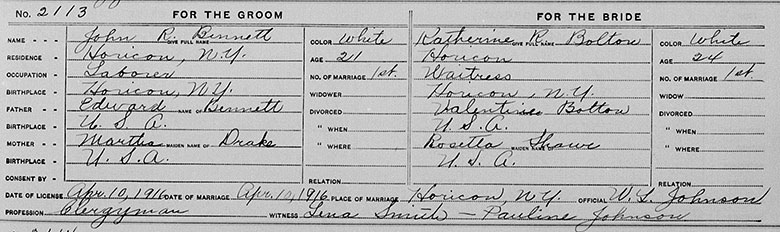 No. 2113 FOR THE GROOM FOR THE BRIDE
NAME John R. Bennett GIVE FULL NAME COLOR White Katherine R. Bolton GIVE FULL NAME COLOR White
RESIDENCE Horicon, N.Y. AGE 21 Horicon AGE 24
OCCUPATION Laborer NO. OF MARRIAGE 1st. Waitress NO. OF MARRIAGE 1st.
BIRTHPLACE Horicon, N.Y. WIDOWER Horicon, N.Y. WIDOW
FATHER Edward NAME OF Bennett DIVORCED Valentine Bolton DIVORCED
BIRTHPLACE U.S.A. " WHEN U.S.A. " WHEN
MOTHER Martha MAIDEN NAME OF Drake " WHERE Rosetta MAIDEN NAME OF Shaw " WHERE
BIRTHPLACE U.S.A. U.S.A.
CONSENT BY RELATION RELATION
DATE OF LICENSE Apr. 10, 1916 DATE OF MARRIAGE Apr. 1916 PLACE OF MARRIAGE Horicon, N.Y. OFFICIAL W. L. Johnson
PROFESSION Clergyman WITNESS Lena Smith - Pauline Johnson